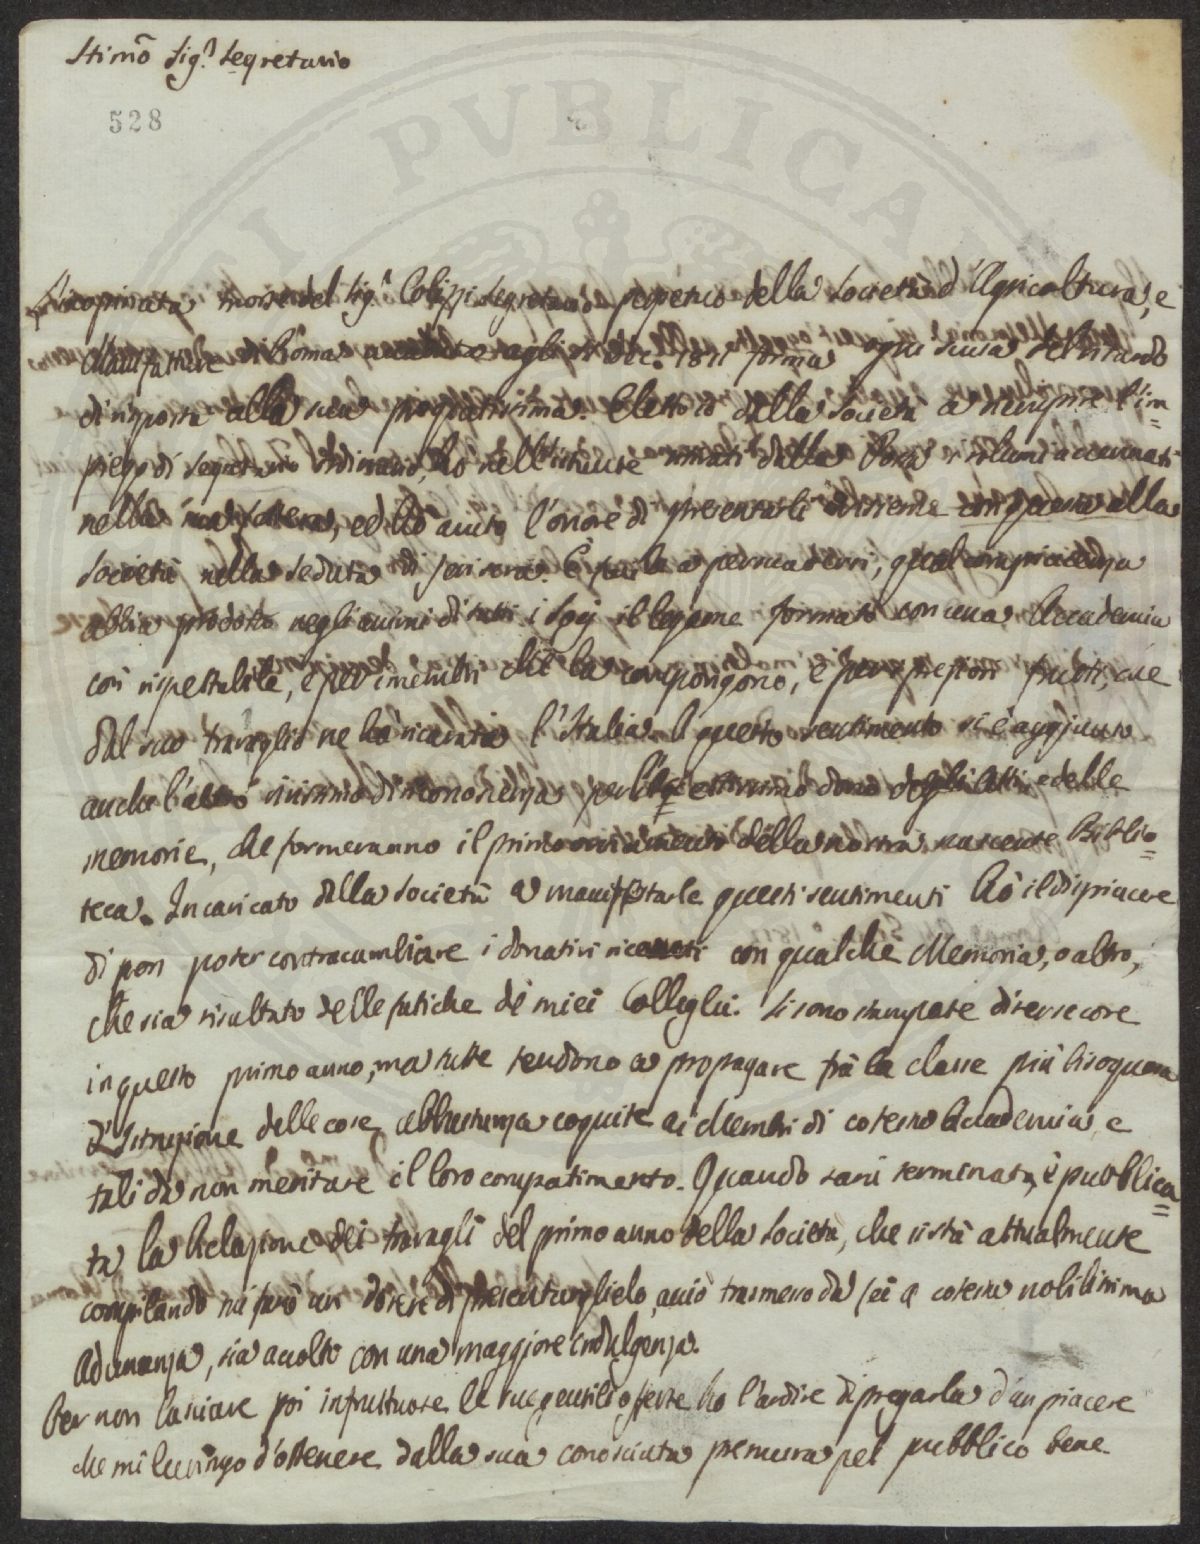 Stimo Sig.r Segretario
528
L'inopinata morte del Sig.r Colizzi Segretario perpetuo della Società d'Agricoltura, e
Manifatture di Roma accaduta agli Dec. 1811 forma ogni scusa del ritardo
di risposta alla sua pregiatissima. Eletto io dalla Società a riempire l'im=
piego di Segretario Ordinario, ho nell'istante ritirati dalla Posta i volumi accennati
nella sua lettera, ed hò avuto l'onore di presentarli insieme con questa alla
Società nella seduta di jeri sera. È facile a persuadersi, qual compiacenza
abbia prodotto negli animi di tutti i Socj il legame formato con una Accademia
così rispettabile, e per i membri che la compongono, e per i preziosi frutti, che
dal suo travaglio ne hà ricavati l'Italia. A questo sentimento si è aggiunto
anche l'altro vivissimo di riconoscenza per il pregiatissimo dono degli Atti, e delle
memorie, che formeranno il primo ornamento della nostra nascente Biblio=
teca. Incaricato dalla Società a manifestarle questi sentimenti hò il dispiacere
di non poter contracambiare i donativi ricevuti con qualche Memoria, o altro,
che sia risultato delle fatiche de miei Colleghi. Si sono stampate diverse cose
in questo primo anno, ma tutte tendono a propagare trà la classe più bisognosa
d'Istruzione delle cose abbastanza cognite ai Membri di cotesta Accademia, e
tali da non meritare il loro compatimento. Quando sarà terminata, e pubblica=
ta la Relazione dei travagli del primo anno della Società, che si stà attualmente
compilando mi farò un dovere di presentargliela, acciò trasmessa da Lei a cotesta nobilissima
Adunanza, sia accolta con una maggiore indulgenza.
Per non lasciare poi infruttuose le sue gentili offerte ho l'ardire di pregarla d'un piacere
che mi lusingo d'ottenere dalla sua conosciuta premura pel pubblico bene